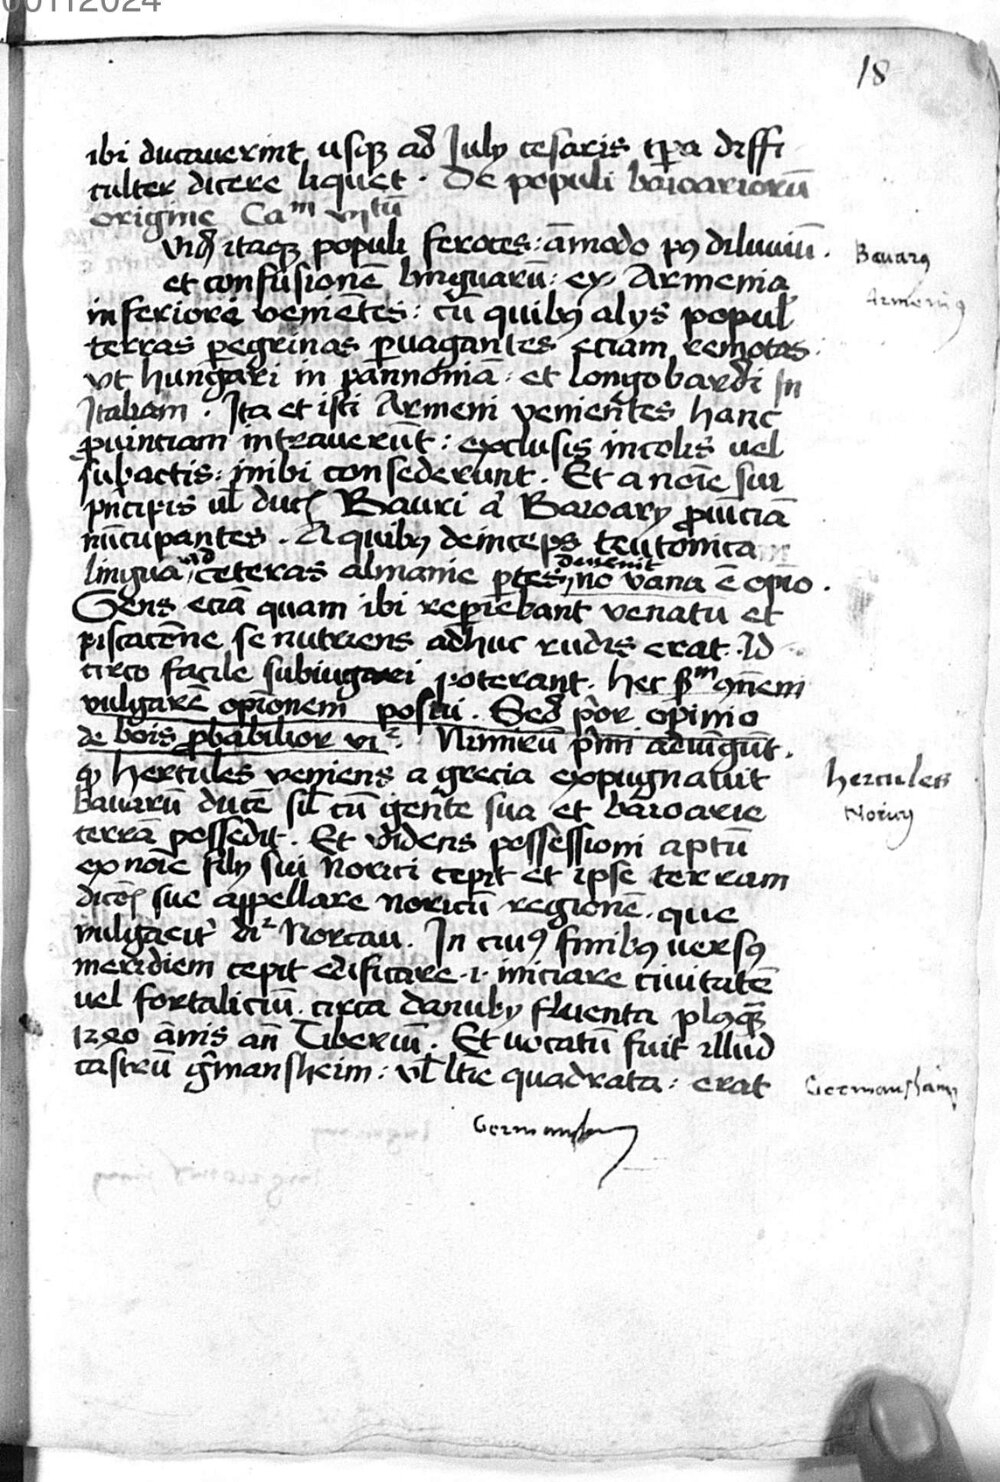 00112024
18
ibi ducauerint usq₃ ad July cesaris tp̄a diffi
culter dicere liquet . De populi baioariorū
origine Caᵐ vijtū
itaq₃ populi feroces : āmodo diluuiū .
et confusionē linguarū : ex Armenia
inferiore venientes : cū quib₉ alys popul'
terras pegrinas puagantes eciam remotas :
vt hungari in pannoniā : et longobardi in
Italiam . Ita et isti Armeni venientes hanc
puinciam intrauerūt : exclusis incolis vel
subactis : inibi consederunt . Et a noīe sui
pncipis ul duc Bauri a Baioary puīciā
nūcupantes . A quib₉ deinceps teutonica
lingua ad ceteras almanie ptes deuenit, nō vana ē opīo .
Gens eciā quam ibi repiebant venatu et
piscacōne se nutriens adhuc rudis erat . Id
circo facile subiugari poterant . hec ꝯ̄nem
vulgarē opīonem posui . Sed por opinio
de bois pbabilior vi² . Nimirū pmi adiūgūt .
q hercules veniens a grecia expugnauit
Bauarū ducē sil cū gente sua et baioarie
terrā possedit . Et videns possessioni aptū
ex noīe fily sui Norici cepit et ipse terram
dicē sue appellare noricū regionē . que
uulgarit' di² Norcau . In cui₉ finib₉ uersq
meridiem cepit edificare .i. iniciare ciuitatē
uel fortaliciū . circa danuby fluenta pl₉q₃
1220 ānis an̄ Tiberiū . Et uocatū fuit illud
castrū gmansheim : vl ltie quadrata : erat
Bauarq
Armeniq
hercules
Noricq
Germanshaim
Germansheim